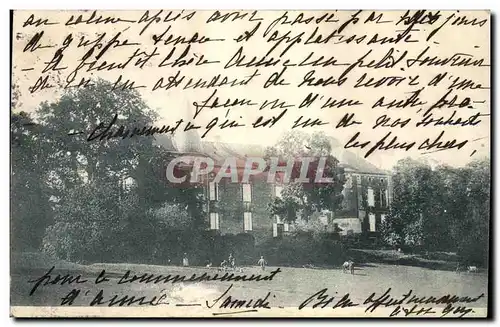 au calme après avoir passé par huit jours
de grippe tenace et applatissante.
A bientôt chère amie un petit souvenir
de en attendant de nous revoir d'une
façon ou d'une autre pro-
chainement ce qui est un de nos souhaits
les plus chers
CPARAMA
pour le commencement
d'année Samedi
Bien affectueusement